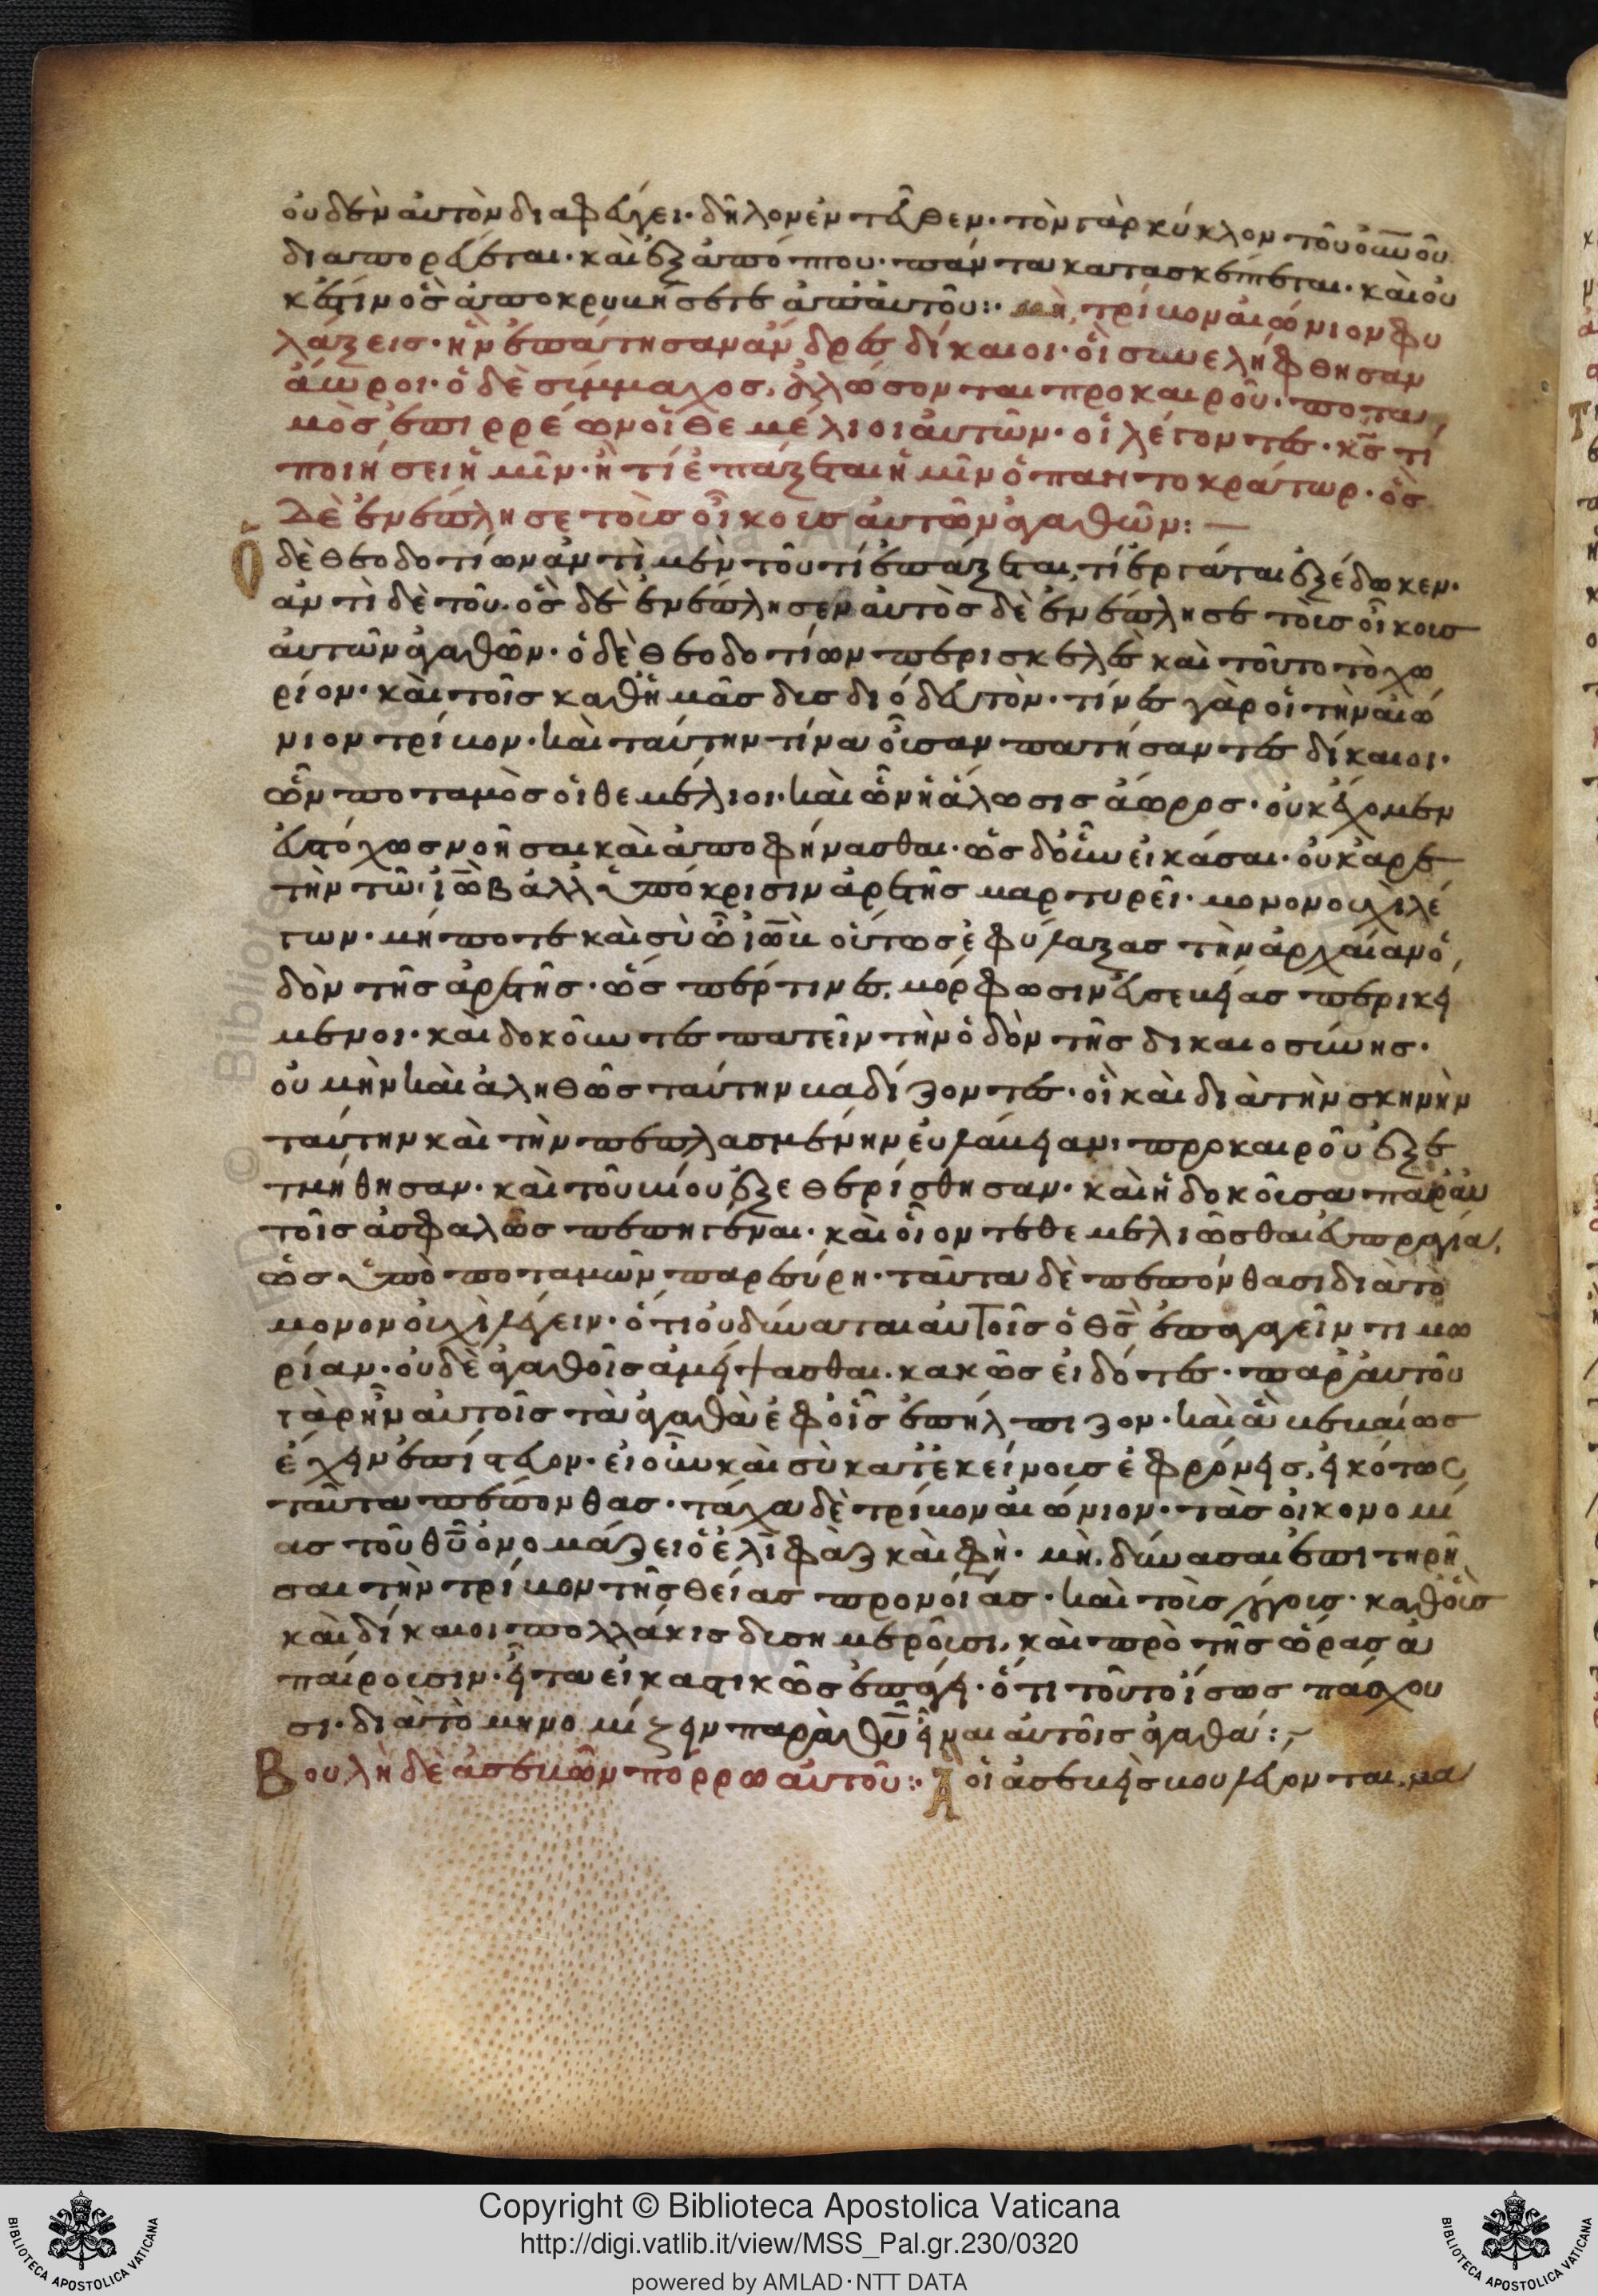 οὐδὲν αὐτὸν διαφεύγει· δῆλον ἐντεῦθεν· τὸν γὰρ κύκλον τοῦ οὐνοῦ
διαπορεύεται· καὶ ἐξ ἀπόπτου· πάντα κατασκέπτεται· καὶ οὐ
κέτι νοὸς ἀποκρυβήσεται ἀπ' αὐτοῦ: μὴ τρίβον αἰώνιον φυ
λάξεις· ἣν ἐπάτησαν ἄνδρες δίκαιοι· οἳ συνελήφθησαν
ἄωροι· ὁ δὲ σύμμαχος, ἁλώσονται πρὸ καιροῦ· ποτα
μὸς ἐπιρρέων οἱ θεμέλιοι αὐτῶν· οἱ λέγοντες· κς τί
ποιήσει ἡμῖν· ἢ τί ἐπάξεται ἡμῖν ὁ παντοκράτωρ· ὃς
δὲ ἐνέπλησε τοὺς οἴκους αὐτῶν ἀγαθῶν: —
Ὁ δὲ θεοδοτίων ἀντὶ μὲν τοῦ τί ἐπάξεται, τί ἐργάται ἐξέδωκεν·
ἀντὶ δὲ τοῦ. ὃς δὲ ἐνέπλησεν αὐτὸς δὲ ἐνέπλησε τοὺς οἴκους
αὐτῶν ἀγαθῶν· ὁ δὲ θεοδοτίων περιεσκελὲς καὶ τοῦτο τὸ χω
ρίον· καὶ τοῖς καθ' ἡμᾶς δυσδιόδευτον· τίνες γὰρ οἱ τὴν αἰώ
νιον τρίβον· καὶ ταύτην τίνα οὖσαν πατήσαντες δίκαιοι·
ὧν ποταμὸς οἱ θεμέλιοι· καὶ ὧν ἡ ἅλωσις ἄωρος· οὐκ ἔχομεν
εὐστόχως νοῆσαι καὶ ἀποφήνασθαι· ὡς δ' οὖν εἰκάσαι· οὐκ ἀρε
τὴν τῶ ἰὼβ ἀλλ' ὑπόκρισιν ἀρετῆς μαρτυρεῖ· μονονουχὶ λέ
γων· μήποτε καὶ σὺ ὦ ἰὼβ οὕτως ἐφύλαξας τὴν ἀρχαίαν ὁ
δὸν τῆς ἀρετῆς· ὥσπερ τινὲς, μόρφωσιν εὐσεβείας περικεί
μενοι· καὶ δοκοῦντες πατεῖν τὴν ὁδὸν τῆς δικαιοσύνης·
οὐ μὴν καὶ ἀληθῶς ταύτην βαδίζοντες· οἳ καὶ διὰ τὴν σκηνὴν
ταύτην καὶ τὴν πεπλασμένην εὐλάβειαν· πρὸ καιροῦ ἐξε
τμήθησαν· καὶ τοῦ βίου ἐξεθερίσθησαν· καὶ ἡ δοκοῦσα παρ' αὐ
τοῖς ἀσφαλῶς πεπηγέναι· καὶ οἷον τεθεμελιῶσθαι εὐπραγία,
ὡς ὑπὸ ποταμῶν παρεσύρη· ταῦτα δὲ πεπόνθασι διὰ τὸ
μονονουχὶ λέγειν· ὅτι οὐ δύναται αὐτοῖς ὁ θς ἐπαγαγεῖν τιμω
ρίαν· οὐδὲ ἀγαθοῖς ἀμείψασθαι. κακῶς εἰδότες· παρ' αὐτοῦ
γὰρ ἦν αὐτοῖς τὰ ἀγαθὰ ἐφ' οἷς ἐπήλπιζον· καὶ ἃ βεβαίως
ἔχειν ἐπίστευον· εἰ οὖν καὶ σὺ κατ' ἐκείνους ἐφρόνεις, εἰκότως
ταῦτα πέπονθας· τάχα δὲ τρίβον αἰώνιον· τὰς οἰκονομί
ας τοῦ θυ ὀνομάζει ὁ ἐλιφάζ καὶ φη· μὴ δύνασαι ἐπιτηρῆ
σαι τὴν τρίβον τῆς θείας προνοίας· καὶ τοὺς λόγους· καθ' οὓς
καὶ δίκαιοι πολλάκις δυσημεροῦσι, καὶ πρὸ τῆς ὥρας ἀ
παίρουσιν· εἶτα εἰκαστικῶς ἐπάγει· ὅτι τοῦτο ἴσως πάσχου
σι· διὰ τὸ μὴ νομίζειν παρὰ θυ εἶναι αὐτοῖς ἀγαθά:
Βουλὴ δὲ ἀσεβῶν πόρρω αὐτοῦ: Ἀ οἱ ἀσεβεῖς βουλεύονται, μα
Copyright © Biblioteca Apostolica Vaticana
http://digi.vatlib.it/view/MSS_Pal.gr.230/0320
powered by AMLAD·NTT DATA